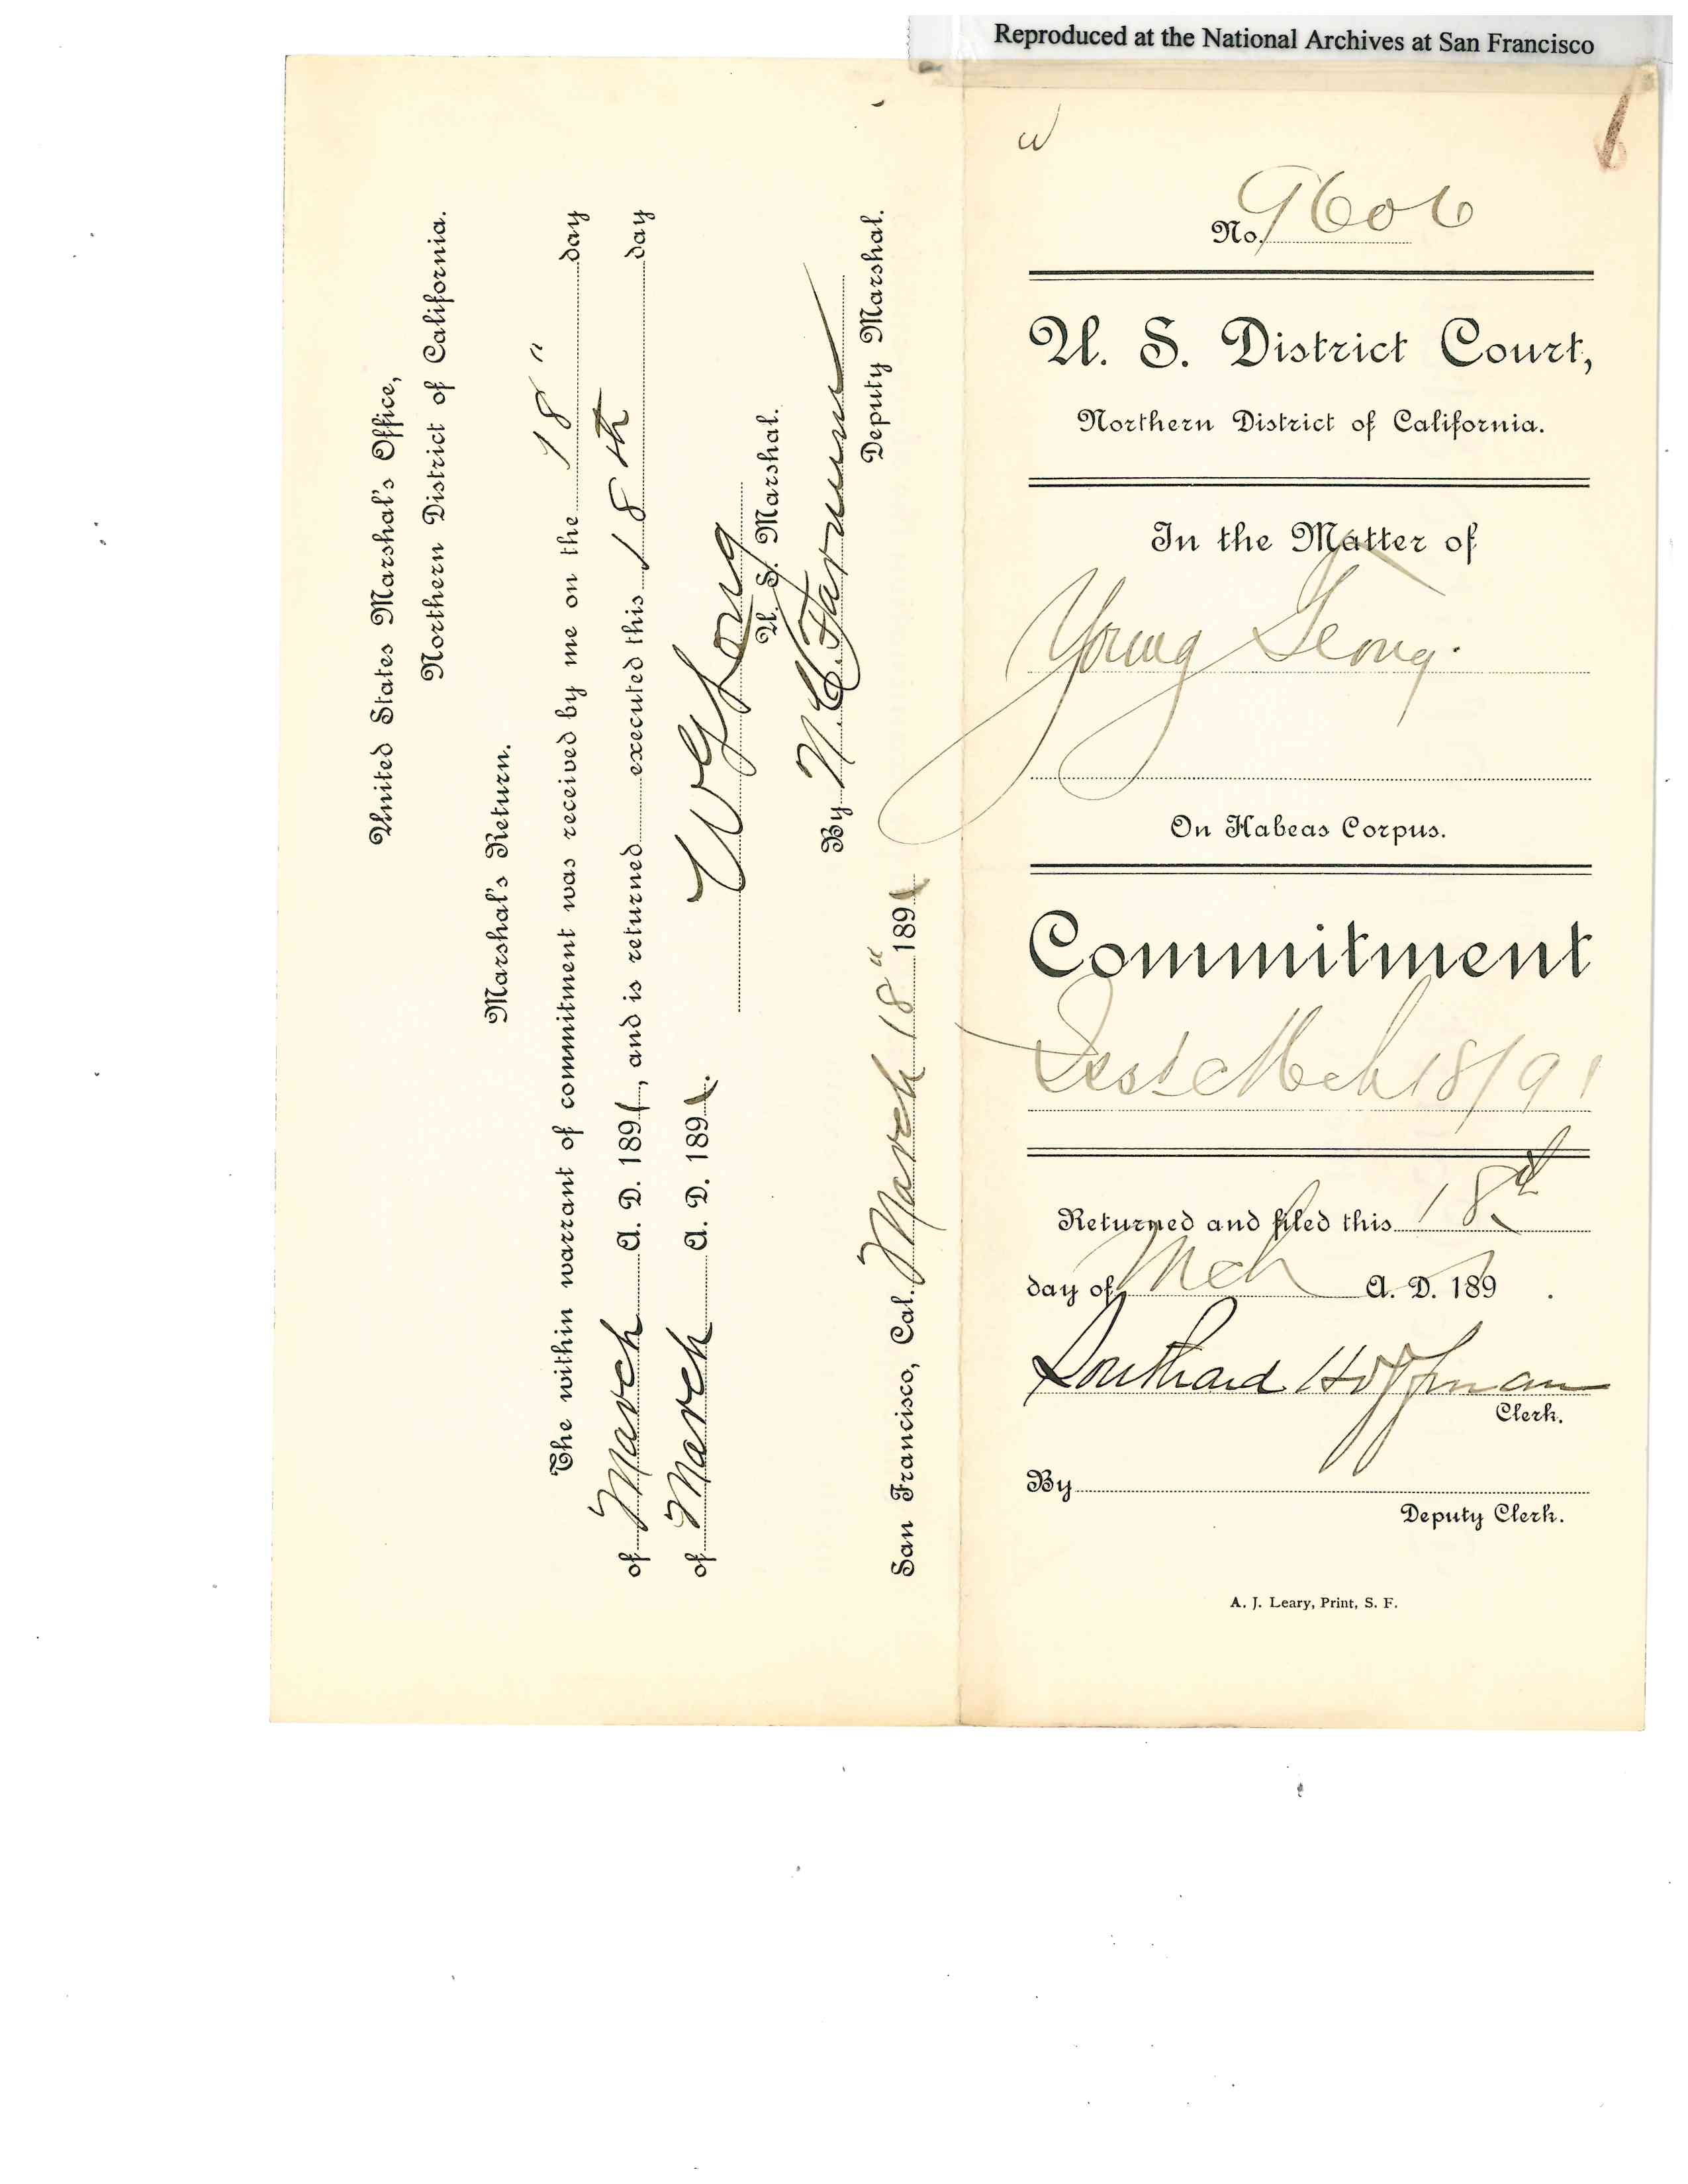 Reproduced at the National Archives at San Francisco
No. 9606
U. S. District Court,
Northern District of California.
In the Matter of
Young
On Habeas Corpus.
Commitment
Mch 18/91
Returned and filed this 18th
day of Mch A. D. 189 .
Southard Hoffman
Clerk.
By
Deputy Clerk.
A. J. Leary, Print, S. F.
United States Marshal's Office,
Northern District of California.
Marshal's Return.
The within warrant of commitment was received by me on the 18" day
of March A. D. 1891, and is returned executed this 18th day
of March A. D. 1891.
W G Long
U. S. Marshal.
By
Deputy Marshal.
San Francisco, Cal. March 18" 1891